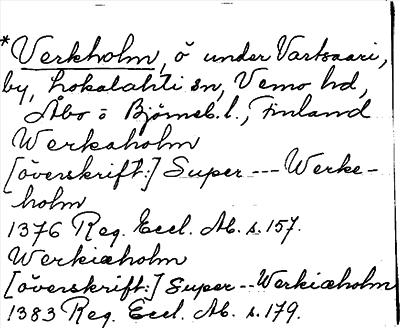 *Verkholm, ö under Vartsaari,
by, Lokalahti sn, Vemo hd,
Åbo o Björneb. l., Finland
Werkaholm
[överskrift:] Super --- Werke-
holm
1376 Reg. Eccl. Ab. s. 157.
Werkiæholm
[överskrift:] Super -- Werkiæholm
1383 Reg. Eccl. Ab. s. 179.